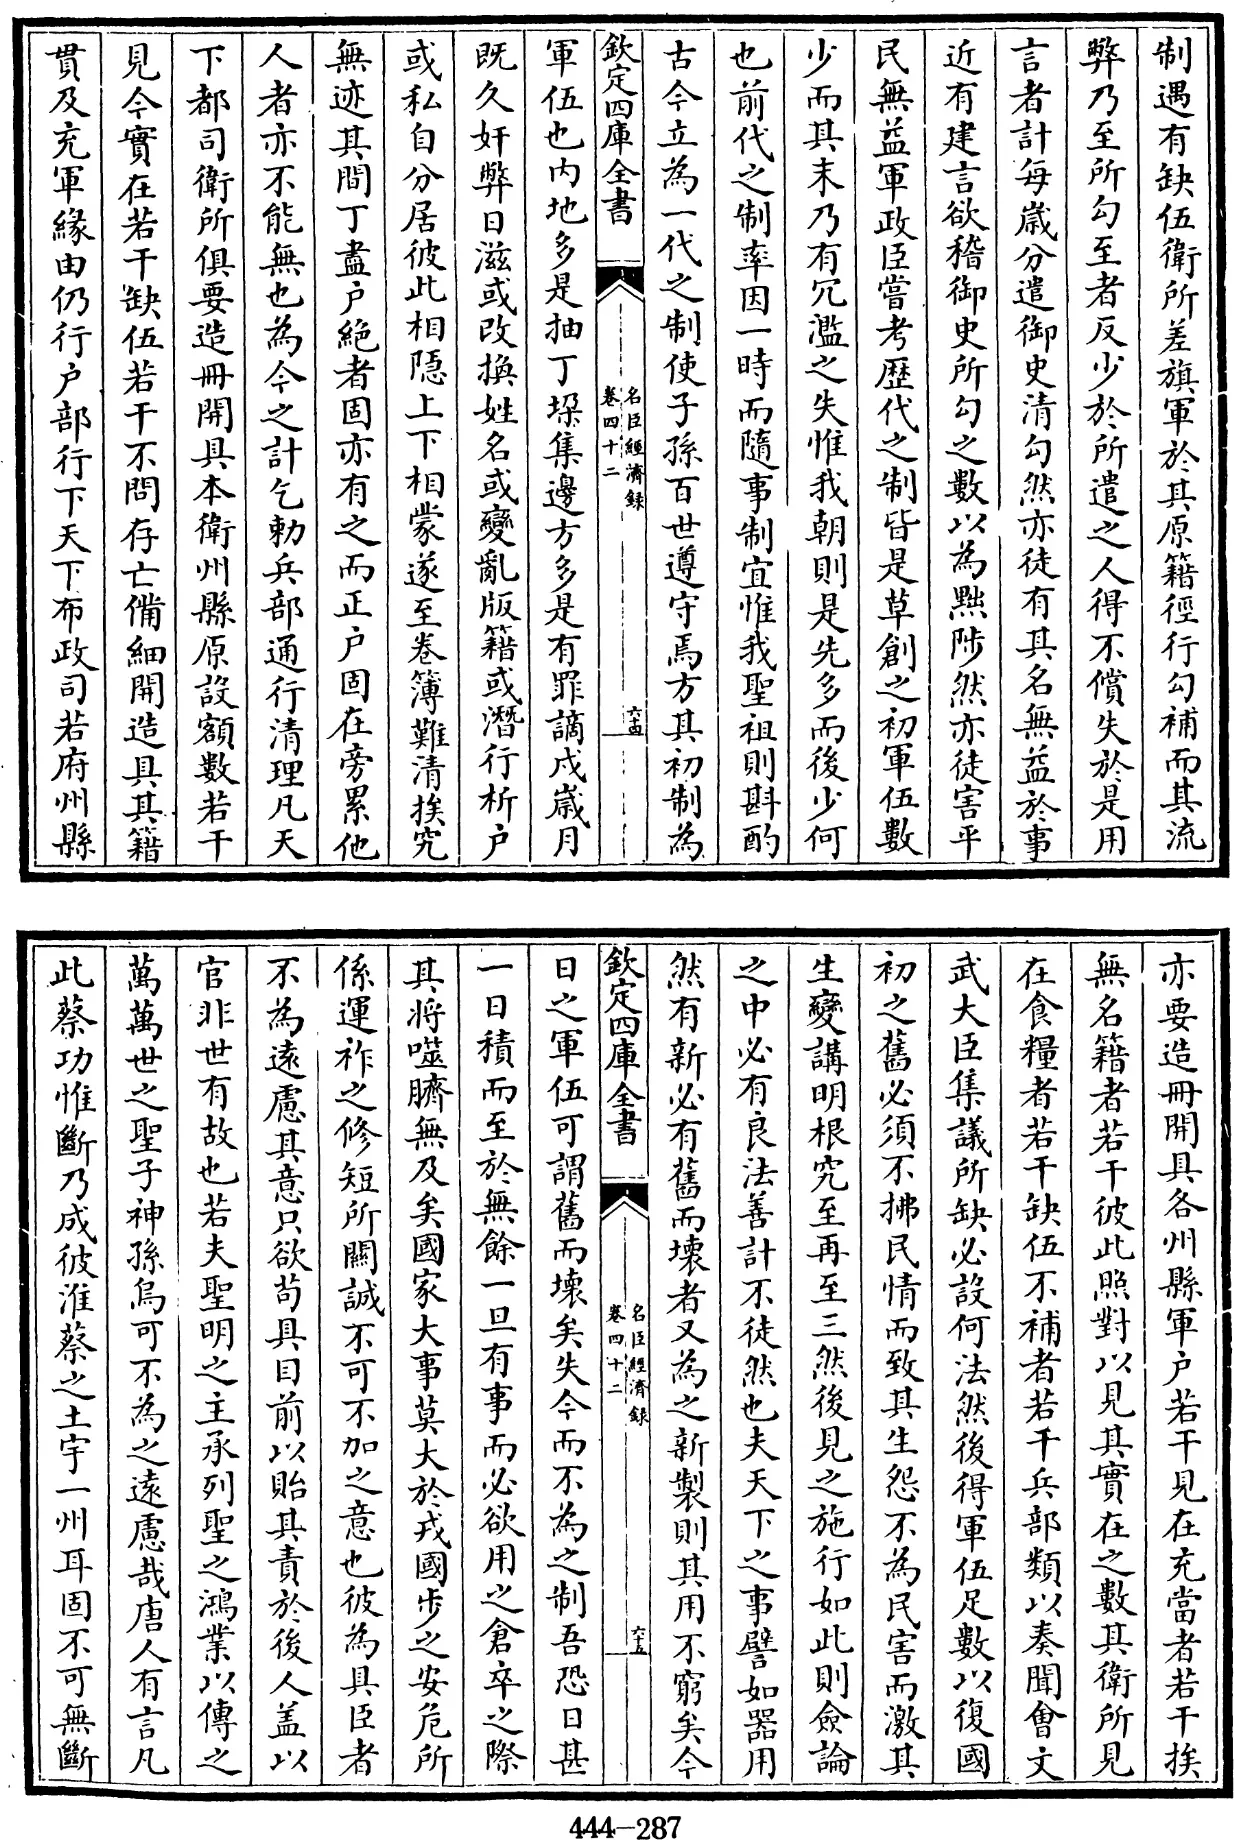 制遇有缺伍衛所差旗軍於其原籍徑行勾補而其流
弊乃至所勾至者反少於所遣之人得不償失於是用
言者計每歲分遣御史清勾然亦徒有其名無益於事
近有建言欲稽御史所勾之數以為黜陟然亦徒害平
民無益軍政臣嘗考歷代之制皆是草創之初軍伍數
少而其末乃有冗濫之失惟我朝則是先多而後少何
也前代之制率因一時而隨事制宜惟我聖祖則斟酌
古今立為一代之制使子孫百世遵守焉方其初制為
欽定四庫全書
名臣經濟録
卷四十二
六十四
軍伍也内地多是抽丁垜集邊方多是有罪謫戍歲月
既久奸弊日滋或改換姓名或變亂版籍或潛行析户
或私自分居彼此相隱上下相蒙遂至卷簿難清挨究
無迹其間丁盡户絶者固亦有之而正户固在旁累他
人者亦不能無也為今之計乞勅兵部通行清理凡天
下都司衛所俱要造冊開具本衛州縣原設額數若干
見今實在若干缺伍若干不問存亡備細開造具其籍
貫及充軍緣由仍行户部行下天下布政司若府州縣
亦要造冊開具各州縣軍户若干見在充當者若干挨
無名籍者若干彼此照對以見其實在之數其衛所見
在食糧者若干缺伍不補者若干兵部類以奏聞會文
武大臣集議所缺必設何法然後得軍伍足數以復國
初之舊必須不拂民情而致其生怨不為民害而激其
生變講明根究至再至三然後見之施行如此則僉論
之中必有良法善計不徒然也夫天下之事譬如器用
然有新必有舊而壞者又為之新製則其用不窮矣今
欽定四庫全書
名臣經濟録
卷四十二
六十五
日之軍伍可謂舊而壞矣失今而不為之制吾恐日甚
一日積而至於無餘一旦有事而必欲用之倉卒之際
其將噬臍無及矣國家大事莫大於戎國步之安危所
係運祚之修短所關誠不可不加之意也彼為具臣者
不為遠慮其意只欲苟具目前以貽其責於後人盖以
官非世有故也若夫聖明之主承列聖之鴻業以傳之
萬萬世之聖子神孫烏可不為之遠慮哉唐人有言凡
此蔡功惟斷乃成彼淮蔡之土宇一州耳固不可無斷
444-287